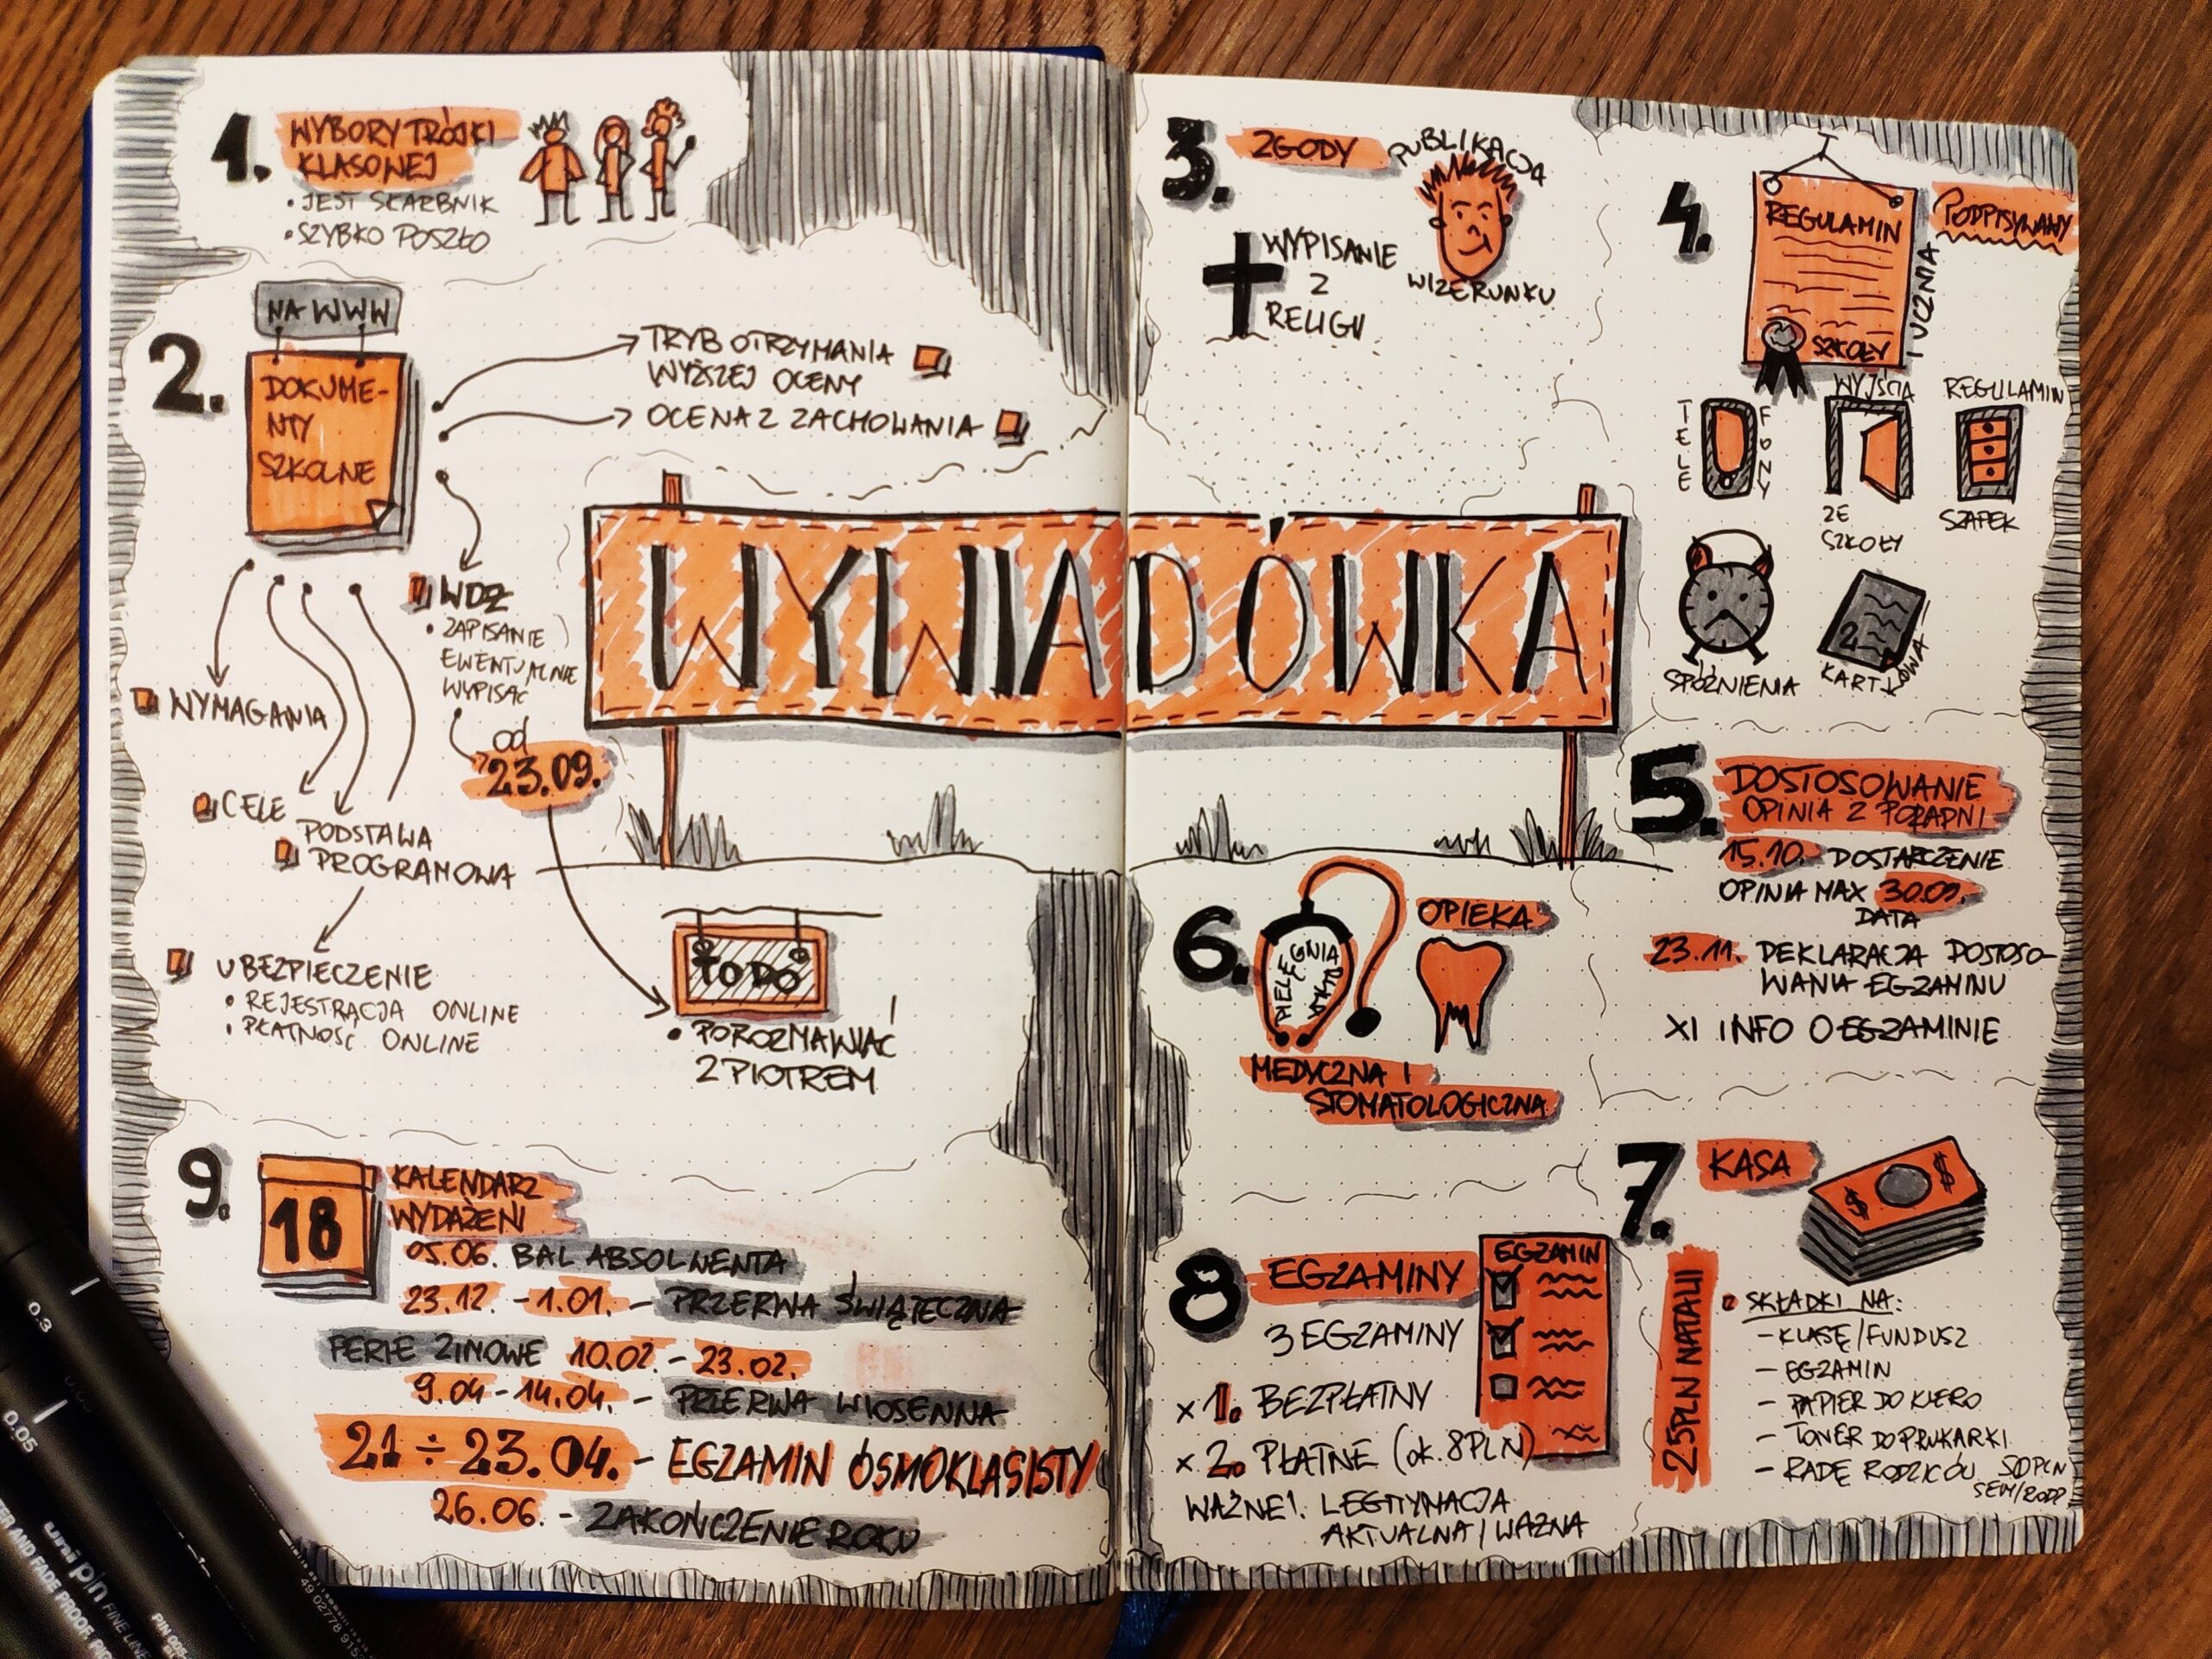 WYWIADÓWKA
1. WYBORY TRÓJKI
KLASOWEJ
• JEST SKARBNIK
• SZYBKO POSZŁO
2.
NA WWW
DOKUME-
NTY
SZKOLNE
TRYB OTRZYMANIA
WYŻSZEJ OCENY
OCENA Z ZACHOWANIA
WDŻ
• ZAPISANIE
EWENTUALNIE
WYPISAĆ
od
23.09.
WYMAGANIA
CELE
PODSTAWA
PROGRAMOWA
UBEZPIECZENIE
• REJESTRACJA ONLINE
• PŁATNOŚĆ ONLINE
TO DO
• POROZMAWIAĆ
Z PIOTREM
3. ZGODY
PUBLIKACJA
WIZERUNKU
WYPISANIE
Z
RELIGII
4.
REGULAMIN
SZKOŁY
I UCZNIA
PODPISYWANY
TELE
FONY
WYJŚCIA
ZE
SZKOŁY
REGULAMIN
SZAFEK
SPÓŹNIENIA
2
KARTKOWA
5. DOSTOSOWANIE
OPINIA Z PORADNI
15.10. DOSTARCZENIE
OPINIA MAX 30.09.
DATA
23.11. DEKLARACJA DOSTOSO-
WANIA EGZAMINU
XI INFO O EGZAMINIE
6.
OPIEKA
PIELĘGNIARKA
MEDYCZNA I
STOMATOLOGICZNA
7. KASA
$ $
25PLN NATALII
• SKŁADKI NA:
- KLASĘ/FUNDUSZ
- EGZAMIN
- PAPIER DO KSERO
- TONER DO DRUKARKI
- RADĘ RODZICÓW 50PLN
SEM/RODZ
8 EGZAMINY
EGZAMIN
3 EGZAMINY
x 1. BEZPŁATNY
x 2. PŁATNE (ok. 8PLN)
WAŻNE! LEGITYMACJA
AKTUALNA / WAŻNA
9.
18
KALENDARZ
WYDAŻENI
05.06. BAL ABSOLWENTA
23.12. - 1.01. - PRZERWA ŚWIĄTECZNA
FERIE ZIMOWE 10.02. - 23.02.
9.04 - 14.04. - PRZERWA WIOSENNA
21 ÷ 23.04. - EGZAMIN ÓSMOKLASISTY
26.06. - ZAKOŃCZENIE ROKU
0.3
0.05
uni pin FINE LINE
WATER AND FADE PROOF
49 02778 915